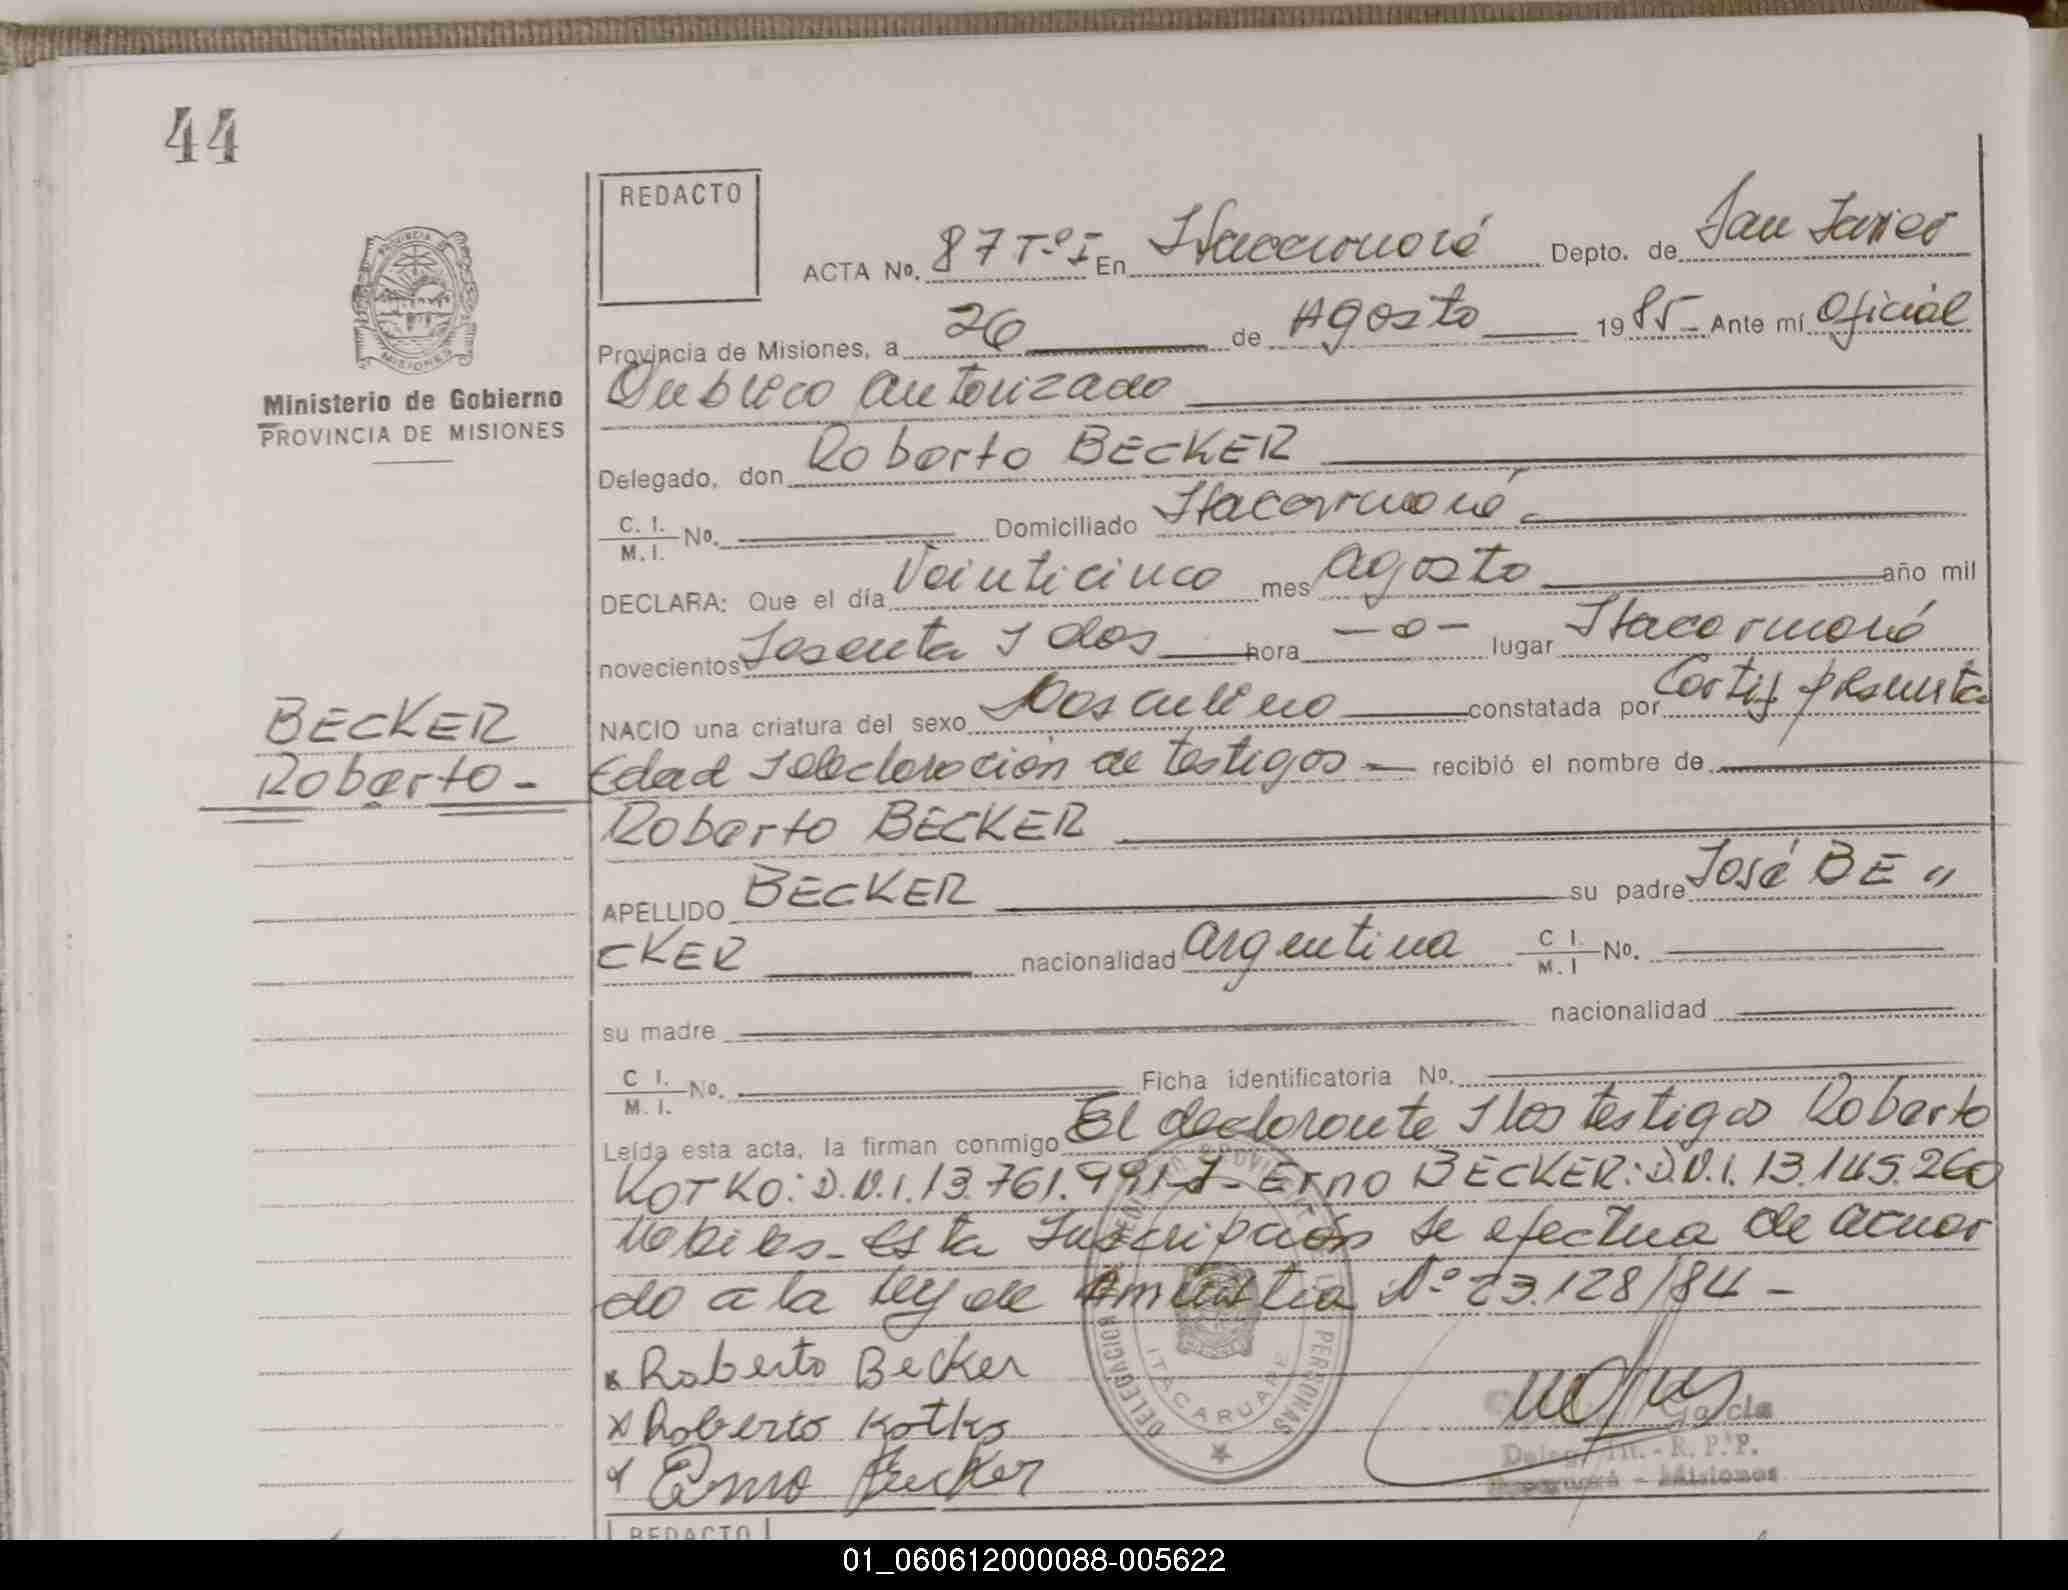 44
REDACTO
ACTA No. 87 Tº I En Itacaruaré Depto. de San Javier
Provincia de Misiones, a 26 de Agosto 1985 Ante mí Oficial
Publico autorizado
Delegado, don Roberto BECKER
C. I. M. I. No. Domiciliado Itacaruaré
DECLARA: Que el día Veinticinco mes agosto año mil
novecientos Sesenta y dos hora —o— lugar Itacaruaré
NACIO una criatura del sexo Masculino constatada por Certif presunta
Edad y declaración de testigos recibió el nombre de
Roberto BECKER
APELLIDO BECKER su padre José BE "
CKER nacionalidad argentina C I. M. I No.
su madre nacionalidad
C I. M. I. No. Ficha identificatoria No.
Leída esta acta, la firman conmigo El declarante y los testigos Roberto
KOTKO: D.N.I. 13.761.991 - Erno BECKER: D.N.I. 13.145.260
Habiles - Esta Inscripción se efectua de acuer
do a la ley de Amnistia Nº 23.128/84 -
x Roberto Becker
x Roberto Kotko
x Erno Becker
DELEGACION
PERSONAS
ITACARUARE
Garcia
Deleg. Tit. - R. P. P.
Itacaruaré - Misiones
PROVINCIA DE
MISIONES
Ministerio de Gobierno
PROVINCIA DE MISIONES
BECKER
Roberto -
REDACTO
01_060612000088-005622